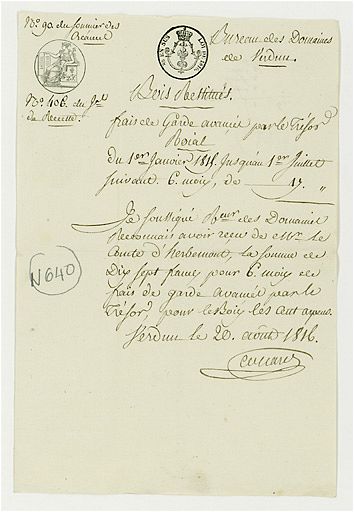 N.º 90. du Sommier des
Bureau des Domaines
de Verdun.
N.º 406. du J.al
de Recette.
Bois Restitués.
frais de Garde avancés par le Trésor
Roial
du 1er Janvier 1816. Jusqu'au 1er Juillet
suivant. 6. mois, de 17. "
Je soussigné Rceur des Domaines
Reconnais avoir reçu de Mr le
Comte d'herbemont, la somme de
Dix Sept francs pour 6. mois de
frais de garde avancés par le
Trésor, pour les Bois
Verdun le 20. août 1816.
N640